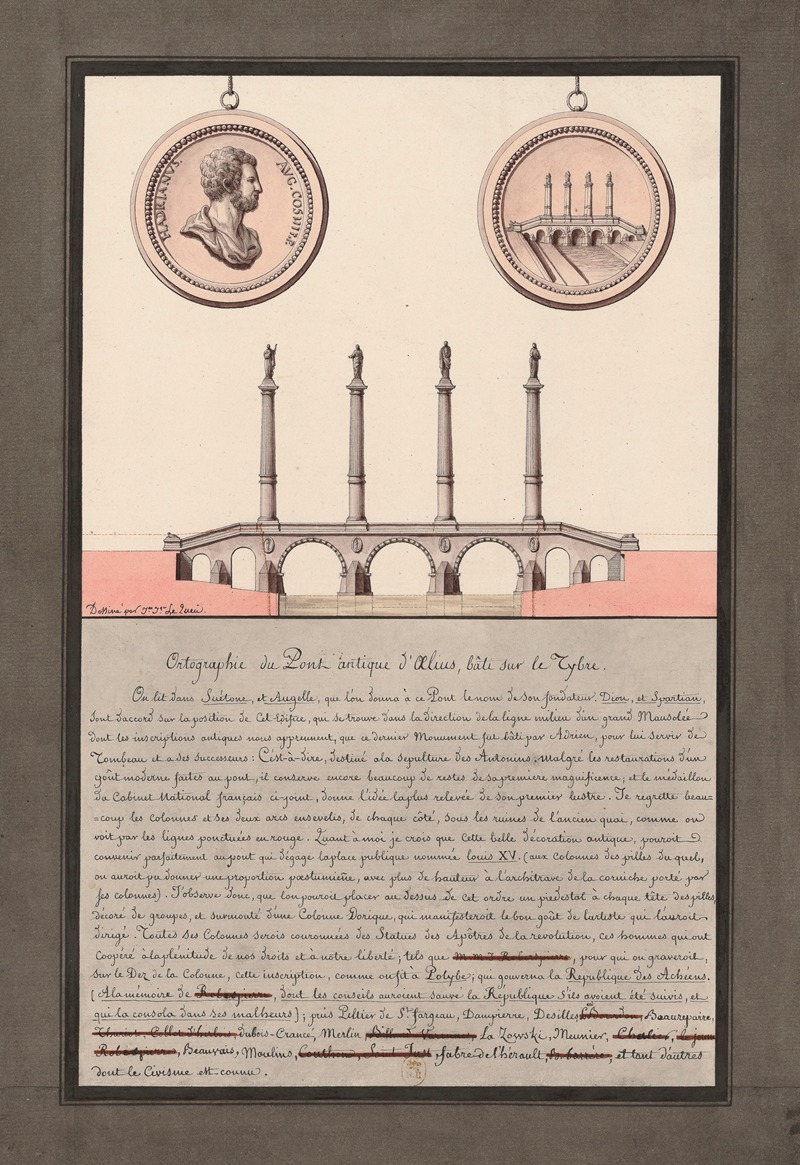 HADRIANVS.
AVG. COS III P.P.
Dessiné par Jn Jes Le Queu.
Ortographie du Pont antique d'Ælius, bâti sur le Tybre.
On lit dans Suétone, et Augelle, que l'on donna à ce Pont le nom de son fondateur. Dion, et Spartian,
sont d'accord sur la position de cet Edifice, qui se trouve dans la direction de la ligne milieu d'un grand Mausolée
dont les inscriptions antiques nous apprennent, que ce dernier Monument fut bâti par Adrien, pour lui servir de
Tombeau et a ses successeurs : C'est-à-dire, destiné a la sepulture des Antonins. Malgré les restaurations d'un
goût moderne faites au pont, il conserve encore beaucoup de restes de sa premiere magnificence; et le médaillon
du Cabinet National français ci-joint, donne l'idée la plus relevée de son premier lustre. Je regrette beau=
=coup les colonnes et ses deux arcs ensevelis, de chaque côté, sous les ruines de l'ancien quai, comme on
voit par les lignes ponctuées en rouge. Quant à moi je crois que cette belle décoration antique, pouroit
convenir parfaitement au pont qui dégage la place publique nommée louis XV. (aux colonnes des pilles du quel,
on auroit pu donner une proportion pœstumiene, avec plus de hauteur à l'architrave de la corniche porté par
ses colonnes). J'observe donc, que l'on pouroit placer au dessus de cet ordre un piedestal à chaque tête des pilles,
décoré de groupes, et surmonté d'une Colonne Dorique, qui manifesteroit le bon goût de l'artiste qui l'auroit
dirigé. Toutes ses Colonnes serois couronnées des Statues des Apôtres de la revolution, ces hommes qui ont
Coopéré à la plénitude de nos droits et à nôtre liberté; tels que M. M. J. Roberspierre, pour qui on graveroit,
sur le Dez de la Colonne, cette inscription, comme on fit à Polybe; qui gouverna la Republique des Achéens.
[A la mémoire de Robespierre, dont les conseils auroient sauvé la République s'ils avoient été suivis, et
qui la consola dans ses malheurs]; puis Peltier de St. fargeau, Dampierre, Desilles, Beaurepaire,
Thuriot, Collot d'herbois, Dubois-Crancé, Merlin, Billaud Varennes, La Zowski, Meunier, Chalier, le jeun
Robespierre, Beauvais, Moulins, Couthon, Saint Just, fabre de l'hérault, B. barrère, et tant d'autres
dont le Civisme est connu.